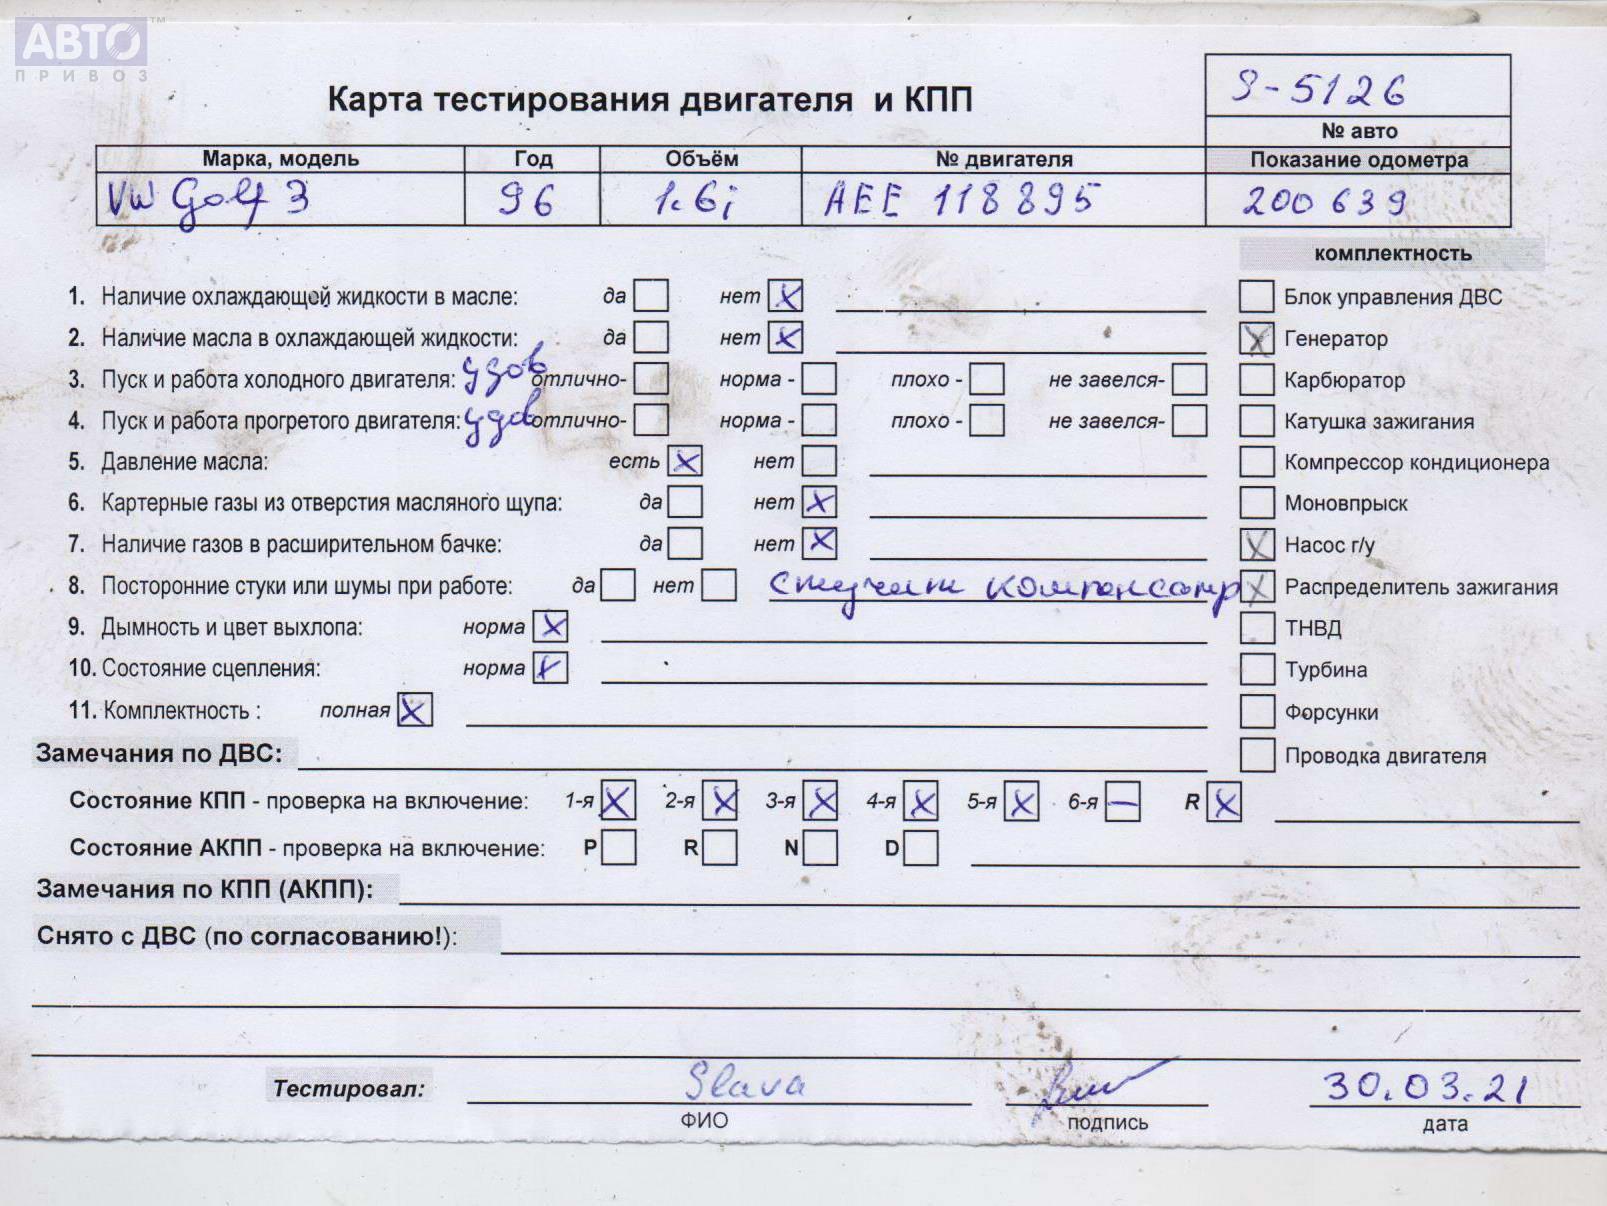 АВТО™
ПРИВОЗ
Карта тестирования двигателя и КПП
S-5126
№ авто
Марка, модель Год Объём № двигателя Показание одометра
VW Golf 3 96 1.6i AEE 118895 200639
комплектность
1. Наличие охлаждающей жидкости в масле: да нет X Блок управления ДВС
2. Наличие масла в охлаждающей жидкости: да нет X X Генератор
3. Пуск и работа холодного двигателя: удов отлично- норма - плохо - не завелся- Карбюратор
4. Пуск и работа прогретого двигателя: удов отлично- норма - плохо - не завелся- Катушка зажигания
5. Давление масла: есть X нет Компрессор кондиционера
6. Картерные газы из отверстия масляного щупа: да нет X Моновпрыск
7. Наличие газов в расширительном бачке: да нет X X Насос г/у
8. Посторонние стуки или шумы при работе: да нет стучат компенсатр X Распределитель зажигания
9. Дымность и цвет выхлопа: норма X ТНВД
10. Состояние сцепления: норма X Турбина
11. Комплектность : полная X Форсунки
Замечания по ДВС: Проводка двигателя
Состояние КПП - проверка на включение: 1-я X 2-я X 3-я X 4-я X 5-я X 6-я — R X
Состояние АКПП - проверка на включение: P R N D
Замечания по КПП (АКПП):
Снято с ДВС (по согласованию!):
Тестировал: Slava 30.03.21
ФИО подпись дата